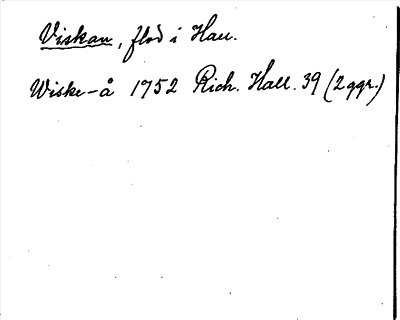 Viskan, flod i Hall.
Wiske-å 1752 Rich. Hall. 39 (2 ggr.)